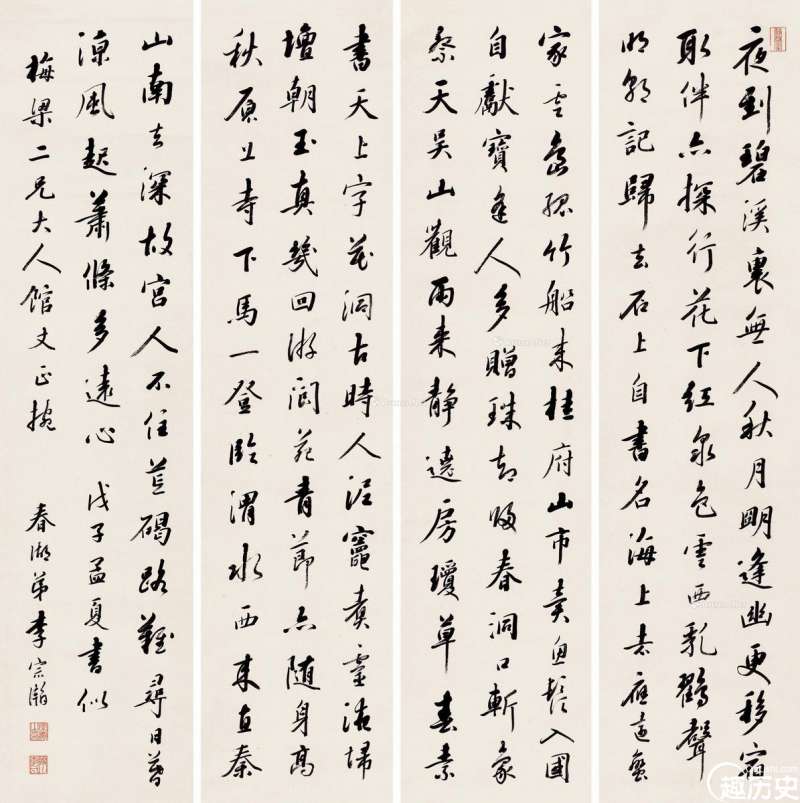 夜到碧溪裏無人秋月明逢幽更移宿
取伴亦探行花下紅泉色雲西乳鶴聲
明朝記歸去石上自書名海上去應遠蠻
家雲島孤竹船來桂府山市賣魚鬚入國
自獻寶逢人多贈珠却歸春洞口斬象
祭天吳山觀雨來靜遠房瓊草春素
書天上字花洞古時人泥竈煮靈液掃
壇朝玉真幾回游閬苑青節亦隨身高
秋原上寺下馬一登臨渭水西來直秦
山南去深故宮人不住荒碣路難尋日暮
涼風起蕭條多遠心 戊子孟夏書似
梅梁二兄大人館丈正捥
春湖弟李宗瀚
趣历史